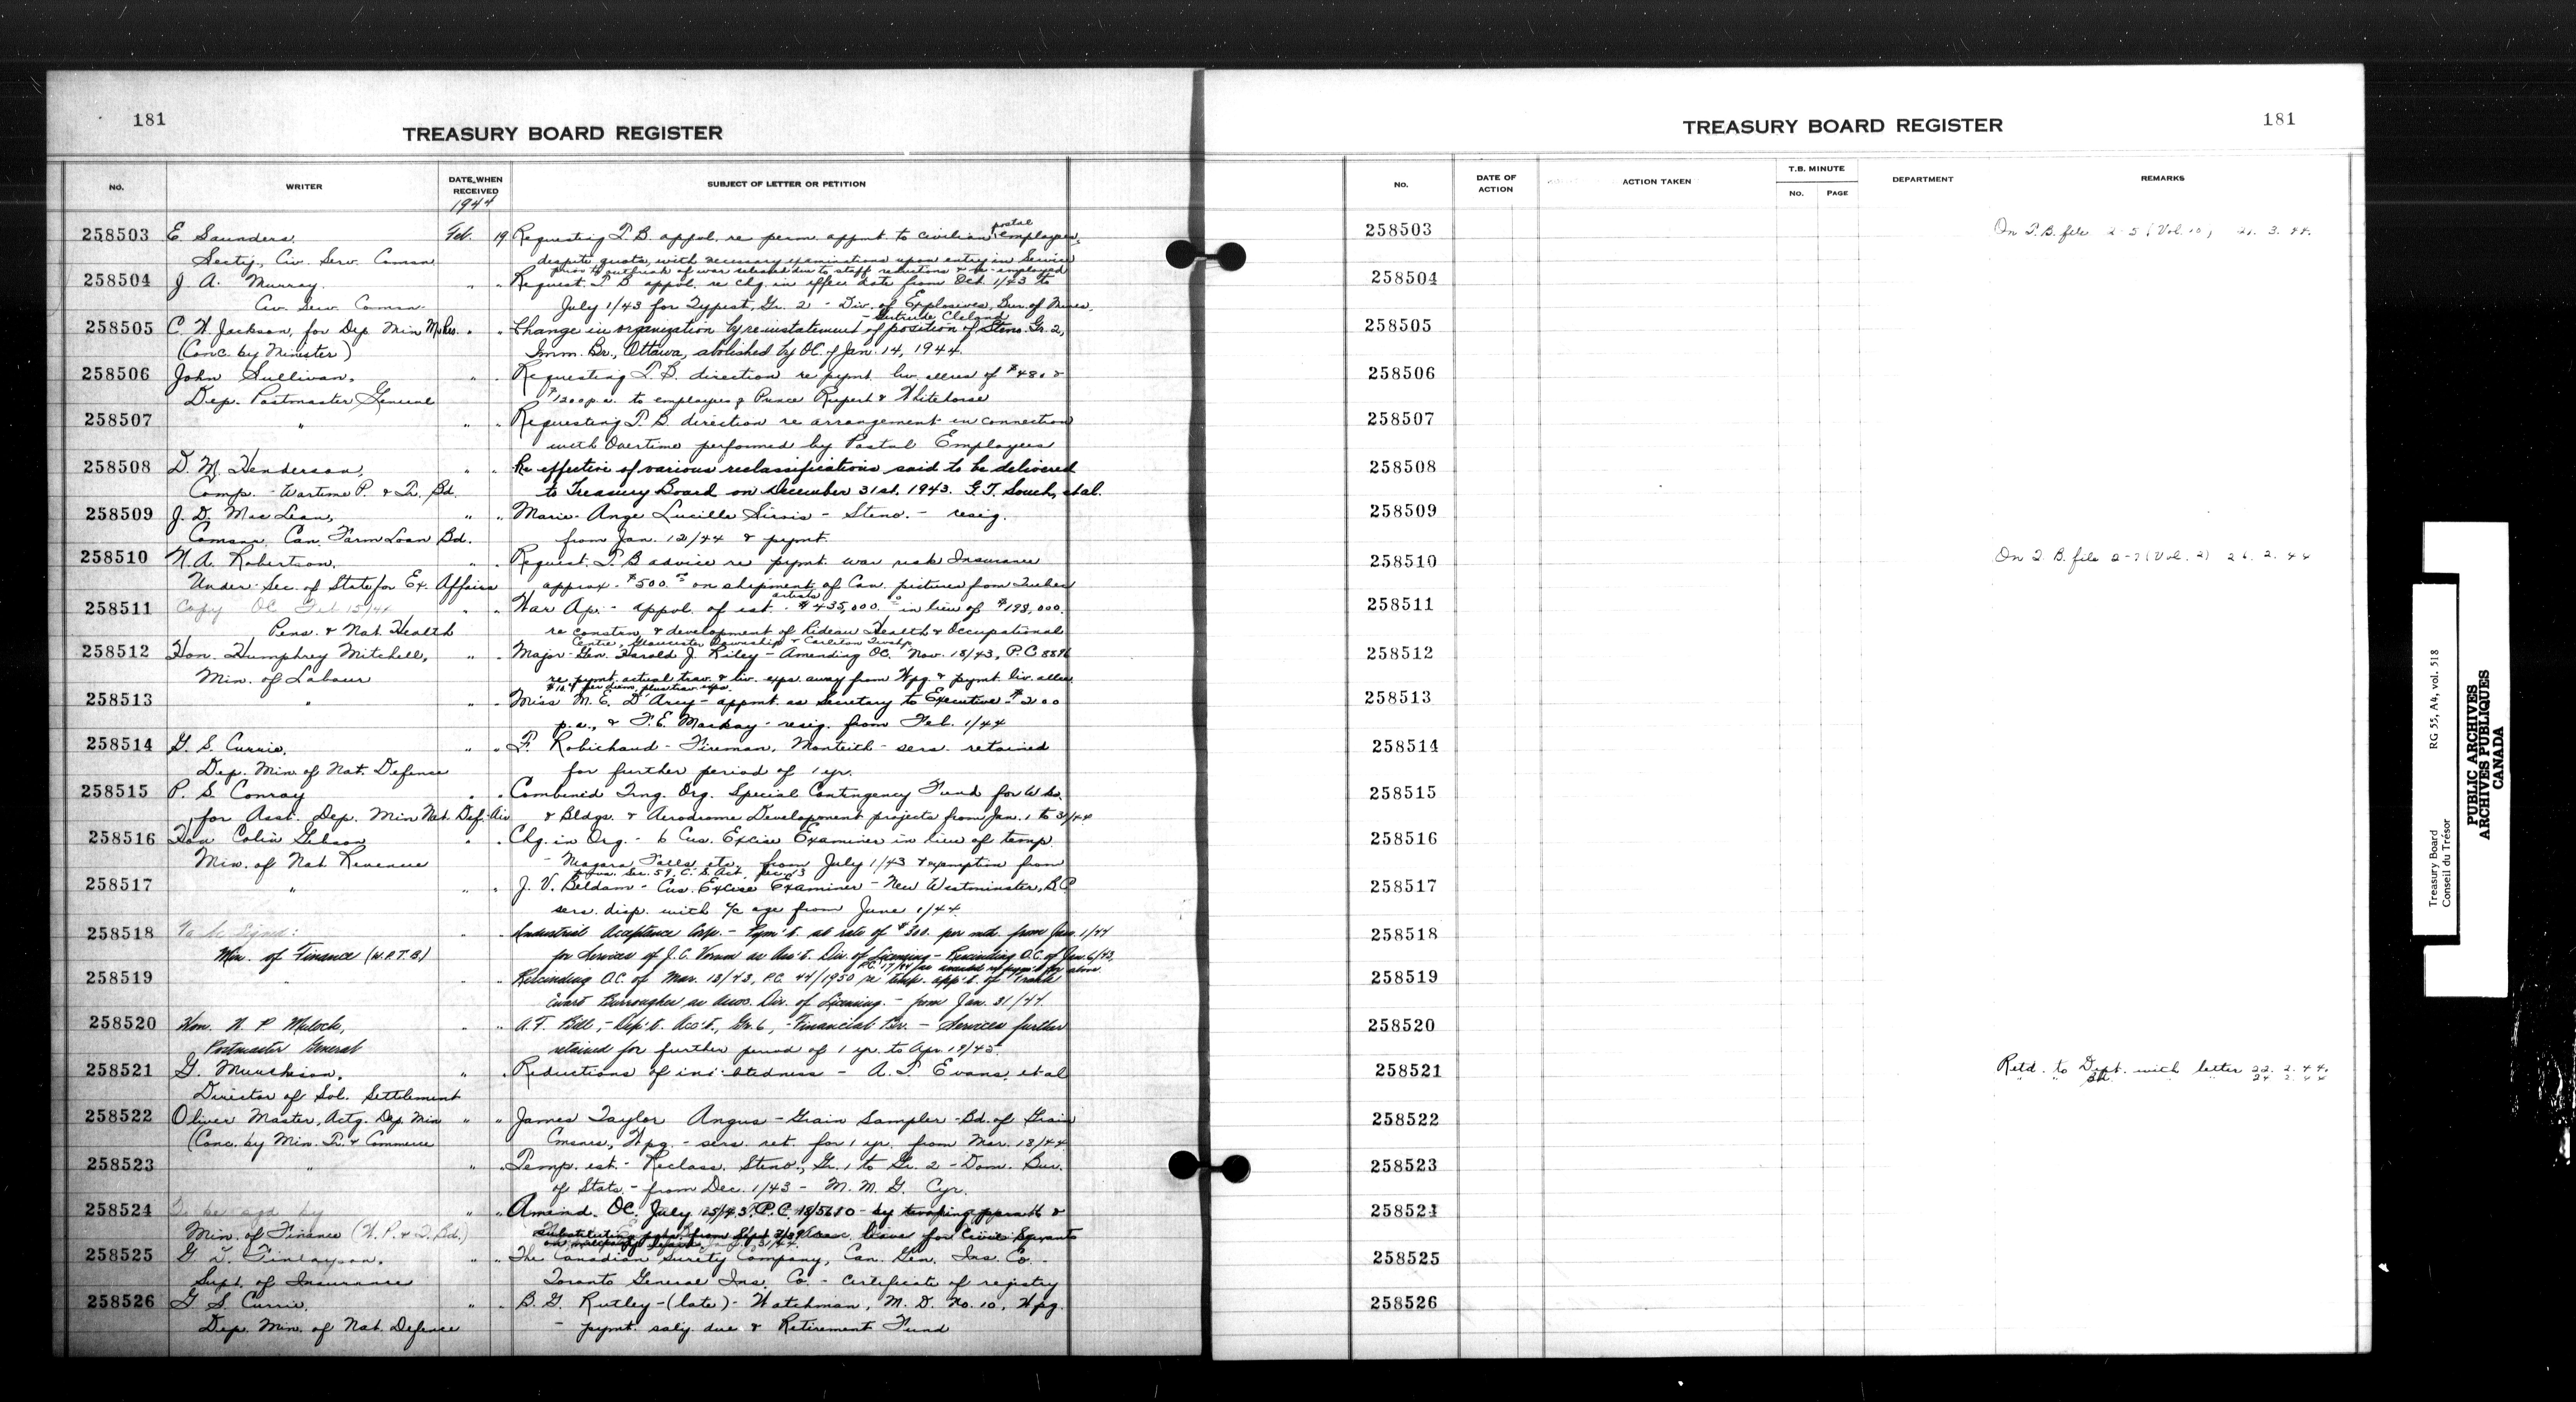 181
TREASURY BOARD REGISTER
NO. WRITER DATE WHEN RECEIVED 1944 SUBJECT OF LETTER OR PETITION
258503 E. Saunders, Feb. 19 Requesting T.B. appol. re perm. appmt to civilian postal employees,
Secty, Civ. Serv. Comsn despite quota, with necessary examinations upon entry in Service
prior to outbreak of war released due to staff reductions & re-employed
258504 J. A. Murray, " " Request. T.B. appol. re chg. in effec. date from Oct. 1/43 to
Civ. Serv. Comsn. July 1/43 for Typist, Gr. 2 - Div. of Explosives, Bur. of Mines,
- Gertrude Cleland
258505 C. W. Jackson, for Dep. Min M & Res. " " Change in organization by reinstatement of position of Steno. Gr. 2,
(Conc. by Minister) Imm. Br., Ottawa, abolished by OC. of Jan. 14, 1944.
258506 John Sullivan, " " Requesting T.B. direction re pymt. liv. allces of $480 &
Dep. Postmaster General $1200 p.a. to employees of Prince Rupert & Whitehorse
258507 " " " Requesting T.B. direction re arrangement in connection
with Overtime performed by Postal Employees
258508 D. M. Henderson, " " Re effective of various reclassifications said to be delivered
Comp. - Wartime P. & Tr. Bd. to Treasury Board on December 31st, 1943. G.T. Souch, et al.
258509 J. D. MacLean, " " Marie-Ange Lucille Sirois - Steno. - resig.
Comsnr. Can. Farm Loan Bd. from Jan. 12/44 & pymt.
258510 N. A. Robertson, " " Request. T.B advice re pymt. war risk Insurance
Under-Sec. of State for Ex. Affairs approx. $500.00 on shipment of Can. artists pictures from Quebec
258511 Copy OC Feb 15/44 " " War Ap. - appol. of est. $435,000.00 in lieu of $198,000.
Pens. & Nat. Health re constrn. & development of Rideau Health & Occupational
Centre, Gloucester Township & Carleton Twnshp.
258512 Hon. Humphrey Mitchell, " " Major-Gen. Harold J. Riley - Amending OC. Nov. 18/43, P.C 8896
Min. of Labour re pymt. actual trav. & liv. exps. away from Wpg. & pymt. liv. allce
per diem, plus trav. exps.
258513 " " " Miss M. E. D'Arcy - appmt. as Secretary to Executive
p.a., & F. E. Mackay - resig. from Feb. 1/44
258514 G. S. Currie, " " F. Robichaud - Fireman, Monteith - sers. retained
Dep. Min. of Nat. Defence for further period of 1 yr.
258515 P. S. Conroy " " Combined Trng. Org. Special Contingency Fund for Wks.
for Asst. Dep. Min Nat. Def. Air & Bldgs. & Aerodrome Development projects from Jan. 1 to 31/44
258516 Hon Colin Gibson " " Chg. in Org. - 6 Cus. Excise Examiner in lieu of temp.
Min. of Nat. Revenue - Niagara Falls, etc., from July 1/43 & exemption from
provs. Sec. 59, C.S. Act,
258517 " " " J. V. Beldam - Cus. Excise Examiner - New Westminster, B.C.
sers. disp. with a/c age from June 1/44.
258518 To be signed: " " Industrial Acceptance Corp. - Pym't. at rate of $300. per mth. from Jan. 1/44
Min. of Finance (W.P.T.B) for Services of J.C. as Ass't. Dir. of Licensing - Rescinding O.C. of Jan. 6/43,
258519 " " " Rescinding O.C. of Mar. 13/43, P.C. 44/1950 re temp. app't. of Frank
Ewart Burroughes as Assoc. Dir. of Licensing. - from Jan. 31/44.
258520 Hon. W. P. Mulock, " " A. F. Bill, - Dep't. Acc't., Gr. 6, - Financial Br. - Services further
Postmaster General retained for further period of 1 yr. to Apr. 19/45.
258521 G. Murchison, " " Reductions of indebtedness - A. T. Evans, et al
Director of Sol. Settlement
258522 Oliver Master, Actg. Dep. Min " " James Taylor Angus - Grain Sampler - Bd. of Grain
(Conc. by Min. Tr. & Commerce Comsnrs, Wpg. - sers. ret. for 1 yr. from Mar. 18/44
258523 " " " Temp. est. - Reclass. Steno., Gr. 1 to Gr. 2 - Dom. Bur.
of Stats. - from Dec. 1/43 - M. M. G. Cyr.
258524 To be sgd by " " Amend. OC. July P.C.
Min. of Finance (W. P. & T. Bd.) leave for Civil Servants
258525 G. D. Finlayson, " " The Canadian Surety Company, Can. Gen. Ins. Co. -
Supt. of Insurance Toronto General Ins. Co. - Certificate of registry
258526 G. S. Currie, " " B. G. Rutley - (late) - Watchman, M. D. No. 10, Wpg.
Dep. Min. of Nat. Defence - pymt. saly. due & Retirement Fund
181
TREASURY BOARD REGISTER
NO. DATE OF ACTION ACTION TAKEN T.B. MINUTE NO. PAGE DEPARTMENT REMARKS
258503 On T.B. file 2-5 (Vol. 10) 21. 3. 44.
258504
258505
258506
258507
258508
258509
258510 On T.B. file 2-7 (Vol. 2) 26. 2. 44
258511
258512
258513
258514
258515
258516
258517
258518
258519
258520
258521 Retd. to Dept. with letter 22. 2. 44.
258522
258523
258524
258525
258526
Treasury Board RG 55, A4, vol. 518
Conseil du Trésor
PUBLIC ARCHIVES
ARCHIVES PUBLIQUES
CANADA